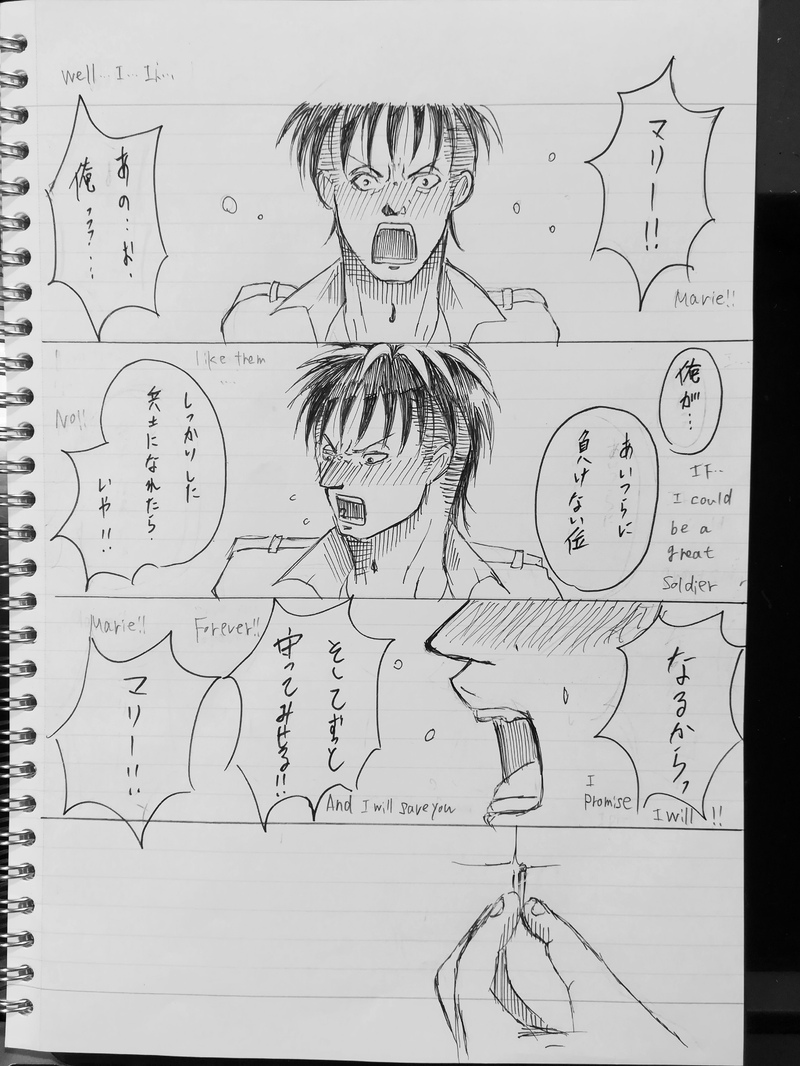 マリー!!
Marie!!
well… I… I…
あの…お、
俺っ…
俺が…
If…
I could
be a
great
Soldier
あいつらに
負けない位
like them
…
しっかりした
兵士になれたら…
いや!!
No!!
なるからっ
I
Promise
I will !!
そしてずっと
守ってみせる!!
And I will save you
Forever!!
マリー!!!
Marie!!